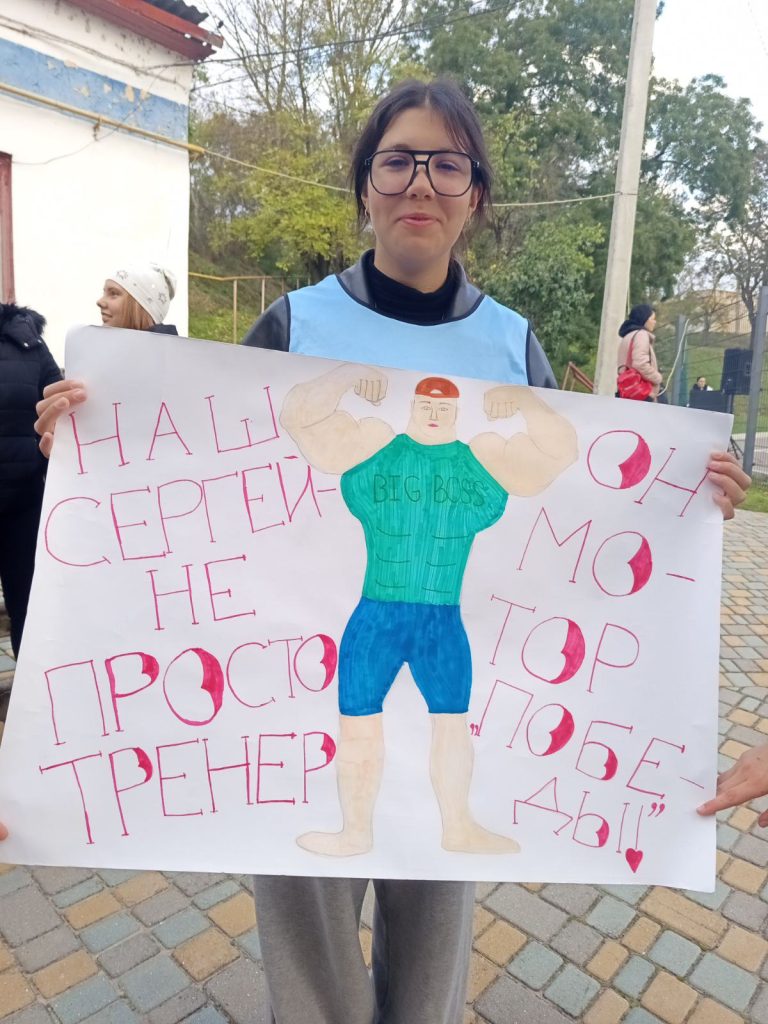 НАШ
СЕРГЕЙ-
НЕ
ПРОСТО
ТРЕНЕР
BIG BOSS
ОН
МО-
ТОР
"ПОБЕ-
ДЫ!"